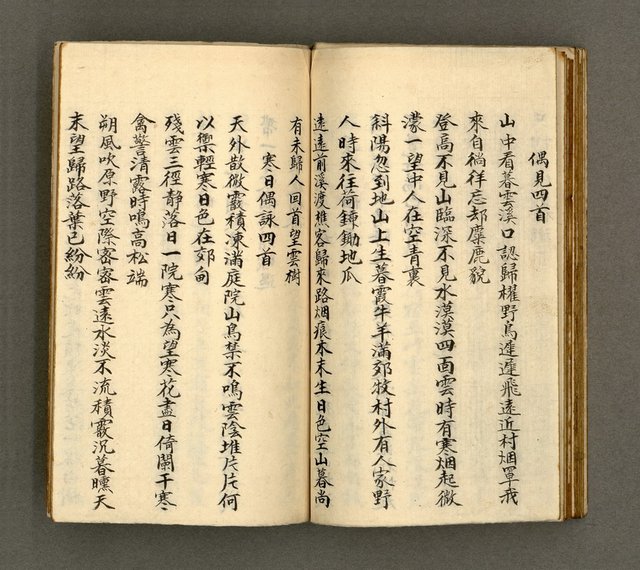 偶見四首
山中看暮雲溪口認歸櫂野鳥遲遲飛遠近村烟罩我
來自徜徉忘却麋鹿貌
登高不見山臨深不見水漠漠四面雲時有寒烟起微
濛一望中人在空青裏
斜陽忽到地山上生暮霞牛羊滿郊牧村外有人家野
人時來往荷鋉鋤地瓜
遠遠前溪渡樵客歸來路烟痕木末生日色空山暮尚
有未歸人回首望雲樹
寒日偶詠四首
天外散微霰積凍滿庭院山鳥禁不鳴雲陰堆片片何
以禦輕寒日色在郊甸
殘雲三徑静落日一院寒只為望寒花盡日倚闌干寒
禽警清露時鳴高松端
朔風吹原野空際密密雲遠水淡不流積霰況暮曛天
末望歸路落葉已紛紛